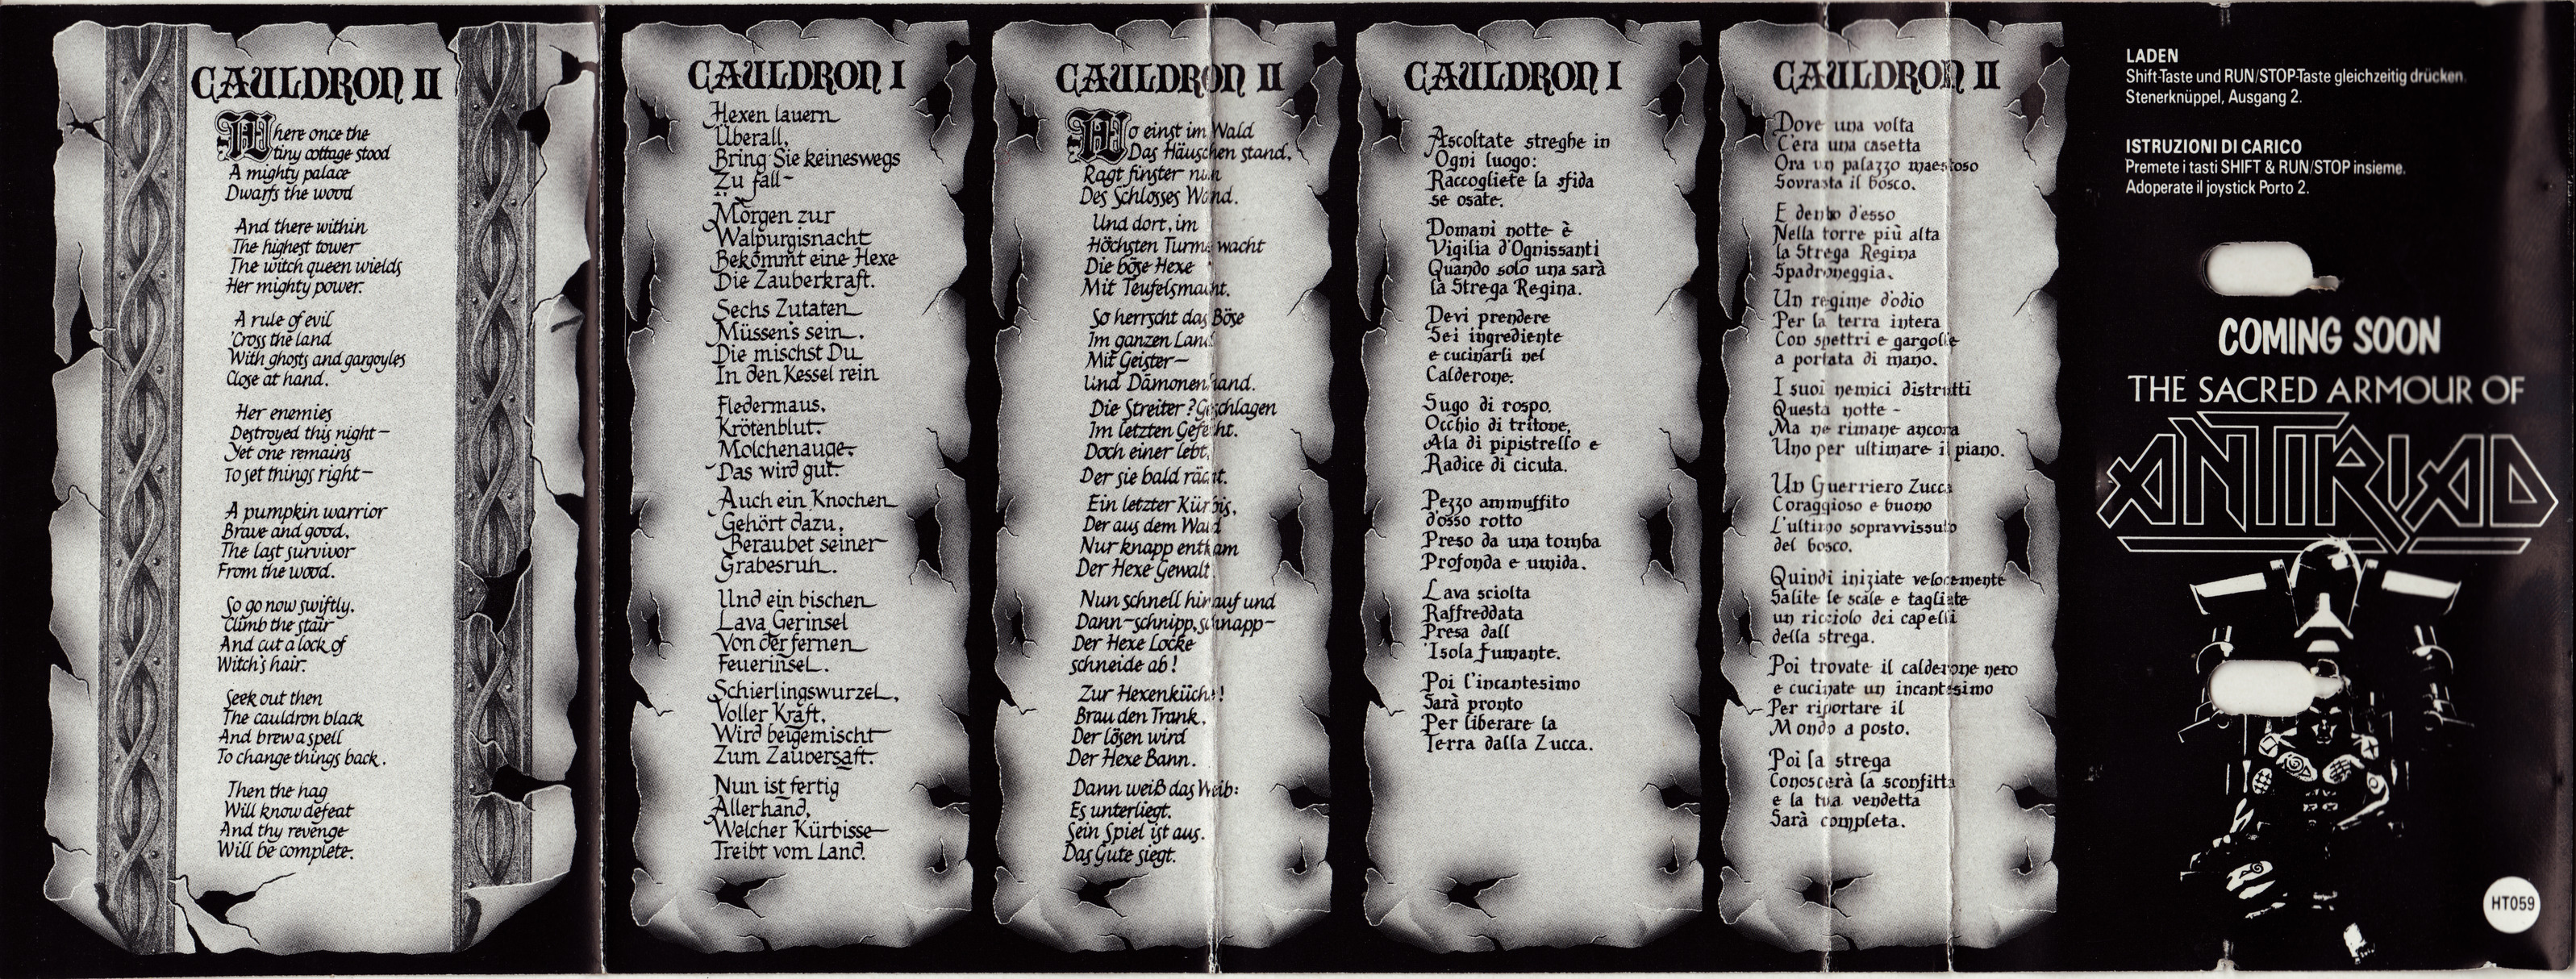 CAULDRON II
Where once the
tiny cottage stood
A mighty palace
Dwarfs the wood
And there within
The highest tower
The witch queen wields
Her mighty power.
A rule of evil
'Cross the land
With ghosts and gargoyles
Close at hand.
Her enemies
Destroyed this night-
Yet one remains
To set things right-
A pumpkin warrior
Brave and good,
The last survivor
From the wood.
So go now swiftly,
Climb the stair
And cut a lock of
Witch's hair.
Seek out then
The cauldron black
And brew a spell
To change things back.
Then the hag
Will know defeat
And thy revenge
Will be complete.
CAULDRON I
Hexen lauern
Überall,
Bring Sie keineswegs
Zu fall-
Morgen zur
Walpurgisnacht
Bekommt eine Hexe
Die Zauberkraft.
Sechs Zutaten
Müssen's sein.
Die mischst Du
In den Kessel rein
Fledermaus,
Krötenblut.
Molchenauge-
Das wird gut.
Auch ein Knochen
Gehört dazu,
Beraubet seiner
Grabesruh.
Und ein bischen
Lava Gerinsel
Von der fernen
Feuerinsel.
Schierlingswurzel,
Voller Kraft,
Wird beigemischt
Zum Zaubersaft.
Nun ist fertig
Allerhand,
Welcher Kürbisse
Treibt vom Land.
CAULDRON II
Wo einst im Wald
Das Häuschen stand,
Ragt finster nun
Des Schlosses Wand.
Und dort, im
Höchsten Turm, wacht
Die böse Hexe
Mit Teufelsmacht.
So herrscht das Böse
Im ganzen Land
Mit Geister-
Und Dämonenhand.
Die Streiter? Geschlagen
Im letzten Gefecht.
Doch einer lebt,
Der sie bald rächt.
Ein letzter Kürbis,
Der aus dem Wald
Nur knapp entkam
Der Hexe Gewalt.
Nun schnell hinauf und
Dann-schnipp, schnapp-
Der Hexe Locke
schneide ab!
Zur Hexenküche!
Brau den Trank,
Der lösen wird
Der Hexe Bann.
Dann weiß das Weib:
Es unterliegt.
Sein Spiel ist aus.
Das Gute siegt.
CAULDRON I
Ascoltate streghe in
Ogni luogo:
Raccogliete la sfida
se osate.
Domani notte è
Vigilia d'Ognissanti
Quando solo una sarà
la Strega Regina.
Devi prendere
Sei ingrediente
e cucinarli nel
Calderone.
Sugo di rospo,
Occhio di tritone,
Ala di pipistrello e
Radice di cicuta.
Pezzo ammuffito
d'osso rotto
Preso da una tomba
Profonda e umida.
Lava sciolta
Raffreddata
Presa dall
'Isola fumante.
Poi l'incantesimo
Sarà pronto
Per liberare la
Terra dalla Zucca.
CAULDRON II
Dove una volta
C'era una casetta
Ora un palazzo maestoso
Sovrasta il bosco.
E dento d'esso
Nella torre più alta
la Strega Regina
Spadroneggia.
Un regime d'odio
Per la terra intera
Con spettri e gargolle
a portata di mano.
I suoi nemici distrutti
Questa notte -
Ma ne rimane ancora
Uno per ultimare il piano.
Un Guerriero Zucca
Coraggioso e buono
L'ultimo sopravvissuto
del bosco.
Quindi iniziate velocemente
Salite le scale e tagliate
un ricciolo dei capelli
della strega.
Poi trovate il calderone nero
e cucinate un incantesimo
Per riportare il
Mondo a posto.
Poi la strega
Conoscerà la sconfitta
e la tua vendetta
Sarà completa.
LADEN
Shift-Taste und RUN/STOP-Taste gleichzeitig drücken.
Stenerknüppel, Ausgang 2.
ISTRUZIONI DI CARICO
Premete i tasti SHIFT & RUN/STOP insieme.
Adoperate il joystick Porto 2.
COMING SOON
THE SACRED ARMOUR OF
ANTIRIAD
HT059